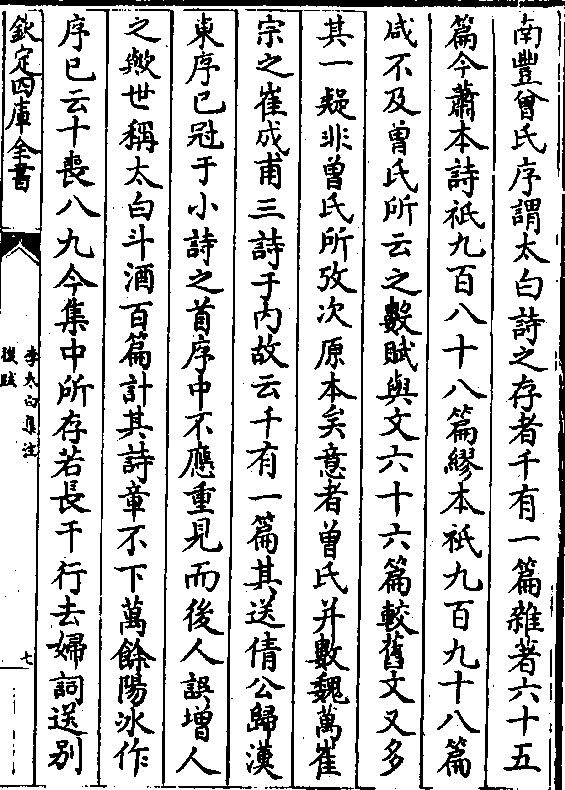 南豐曾氏序謂太白詩之存者千有一篇雜著六十五
篇今蕭本詩祇九百八十八篇繆本祇九百九十八篇
咸不及曾氏所云之數賦與文六十六篇較舊文又多
其一疑非曾氏所攷次原本矣意者曾氏并數魏萬崔
宗之崔成甫三詩于內故云千有一篇其送倩公歸漢
東序已冠于小詩之首序中不應重見而後人誤增入
之歟世稱太白斗酒百篇計其詩章不下萬餘陽冰作
序已云十喪八九今集中所存若長干行去婦詞送别
欽定四庫全書
李太白集注
後跋
七